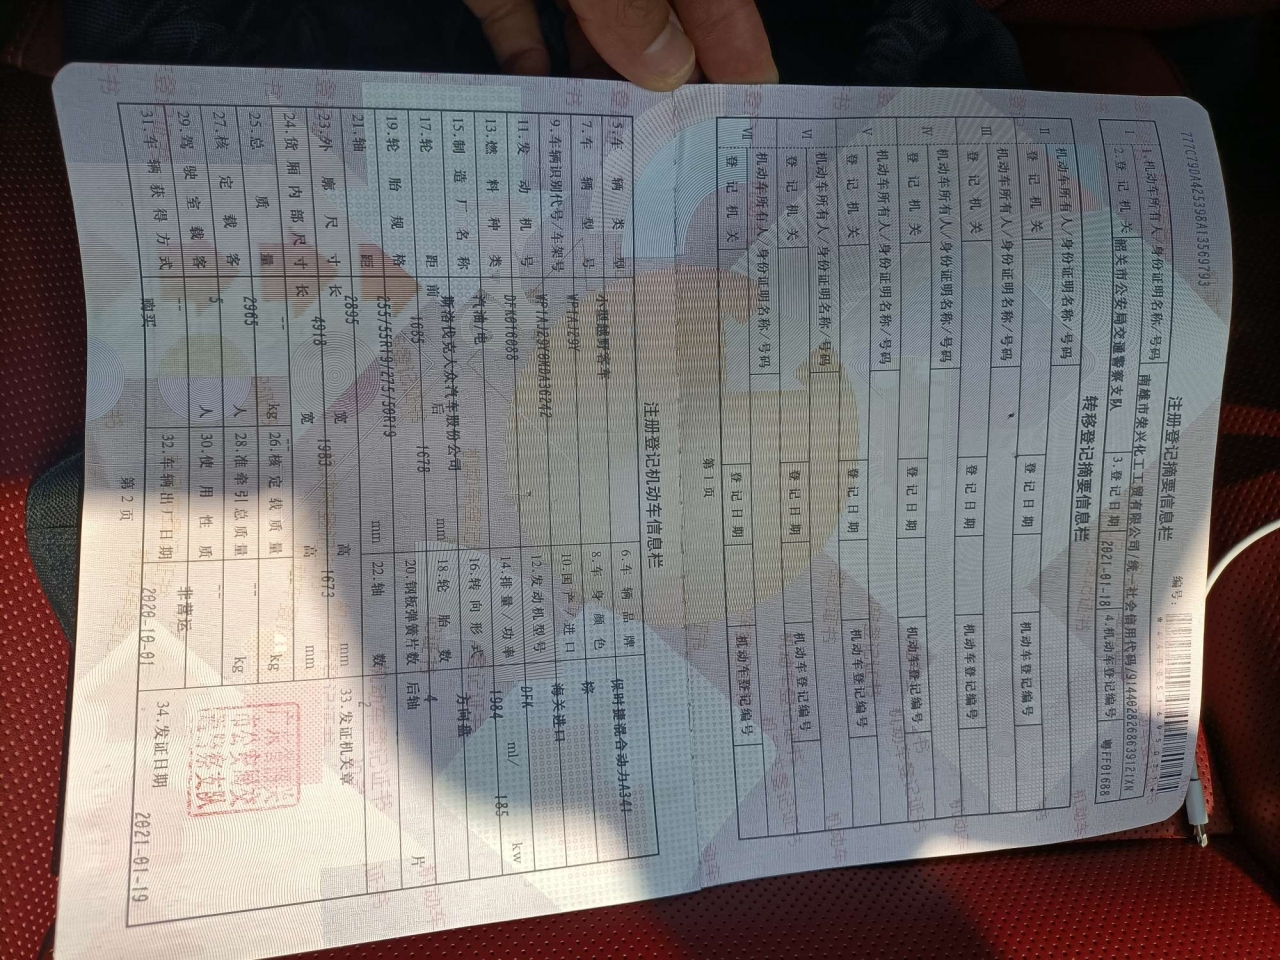 777C79DA425398A13569793
编号:
注册登记摘要信息栏
I 1.机动车所有人/身份证明名称/号码 南雄市荣兴化工工贸有限公司/统一社会信用代码/9144028268639121XN
2.登记机关 韶关市公安局交通警察支队 3.登记日期 2021-01-18 4.机动车登记编号 粤FF01688
转移登记摘要信息栏
II 机动车所有人/身份证明名称/号码
登记机关 登记日期 机动车登记编号
III 机动车所有人/身份证明名称/号码
登记机关 登记日期 机动车登记编号
IV 机动车所有人/身份证明名称/号码
登记机关 登记日期 机动车登记编号
V 机动车所有人/身份证明名称/号码
登记机关 登记日期 机动车登记编号
VI 机动车所有人/身份证明名称/号码
登记机关 登记日期 机动车登记编号
VII 机动车所有人/身份证明名称/号码
登记机关 登记日期 机动车登记编号
第1页
注册登记机动车信息栏
5.车辆类型 小型越野客车 6.车辆品牌 保时捷混合动力A341
7.车辆型号 WP1AJ29Y 8.车身颜色 棕
9.车辆识别代号/车架号 10.国产/进口 海关进口
11.发动机号 DFK010088 12.发动机型号 DFK
13.燃料种类 汽油/电 14.排量/功率 1984 ml/ 185 kw
15.制造厂名称 斯洛伐克大众汽车股份公司 16.转向形式 方向盘
17.轮距 前 1685 后 1678 mm 18.轮胎数 4
19.轮胎规格 255/55R19/275/50R19 20.钢板弹簧片数 后轴 片
21.轴距 2895 mm 22.轴数 2
23.外廓尺寸 长 4918 宽 1983 高 1673 mm 33.发证机关章
24.货厢内部尺寸 长 -- 宽 -- 高 -- mm
25.总质量 2965 kg 26.核定载质量 -- kg
27.核定载客 5 人 28.准牵引总质量 -- kg
29.驾驶室载客 -- 人 30.使用性质 非营运
31.车辆获得方式 购买 32.车辆出厂日期 2020-10-01 34.发证日期 2021-01-19
第2页